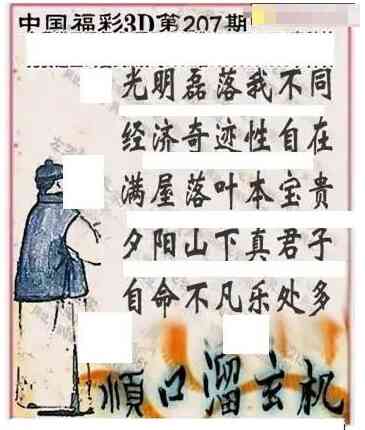 中国福彩3D第207期
光明磊落我不同
经济奇迹性自在
满屋落叶本宝贵
夕阳山下真君子
自命不凡乐处多
順口溜玄机